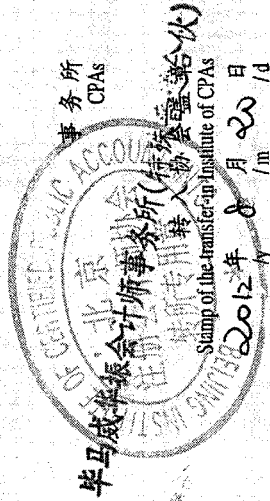 事务所
CPAs
毕马威华振会计师事务所(特殊普通合伙)
转入协会盖章
Stamp of the transfer-in Institute of CPAs
2012年 8月 20日
/y /m /d
BEIJING INSTITUTE OF CERTIFIED PUBLIC ACCOU
北京
注册
协会
转所专用章